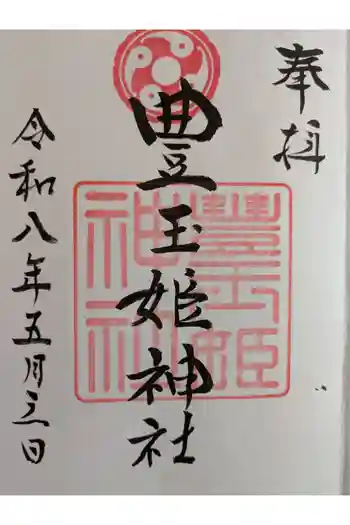 奉拝
豊玉姫神社
豊玉姫神社
令和八年五月三日